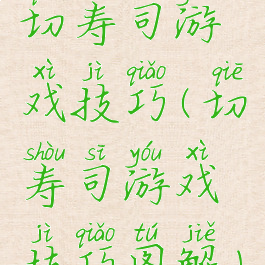 切寿司游
xì jì qiǎo qiē
戏技巧(切
shòu sī yóu xì
寿司游戏
jì qiǎo tú jiě
技巧图解)